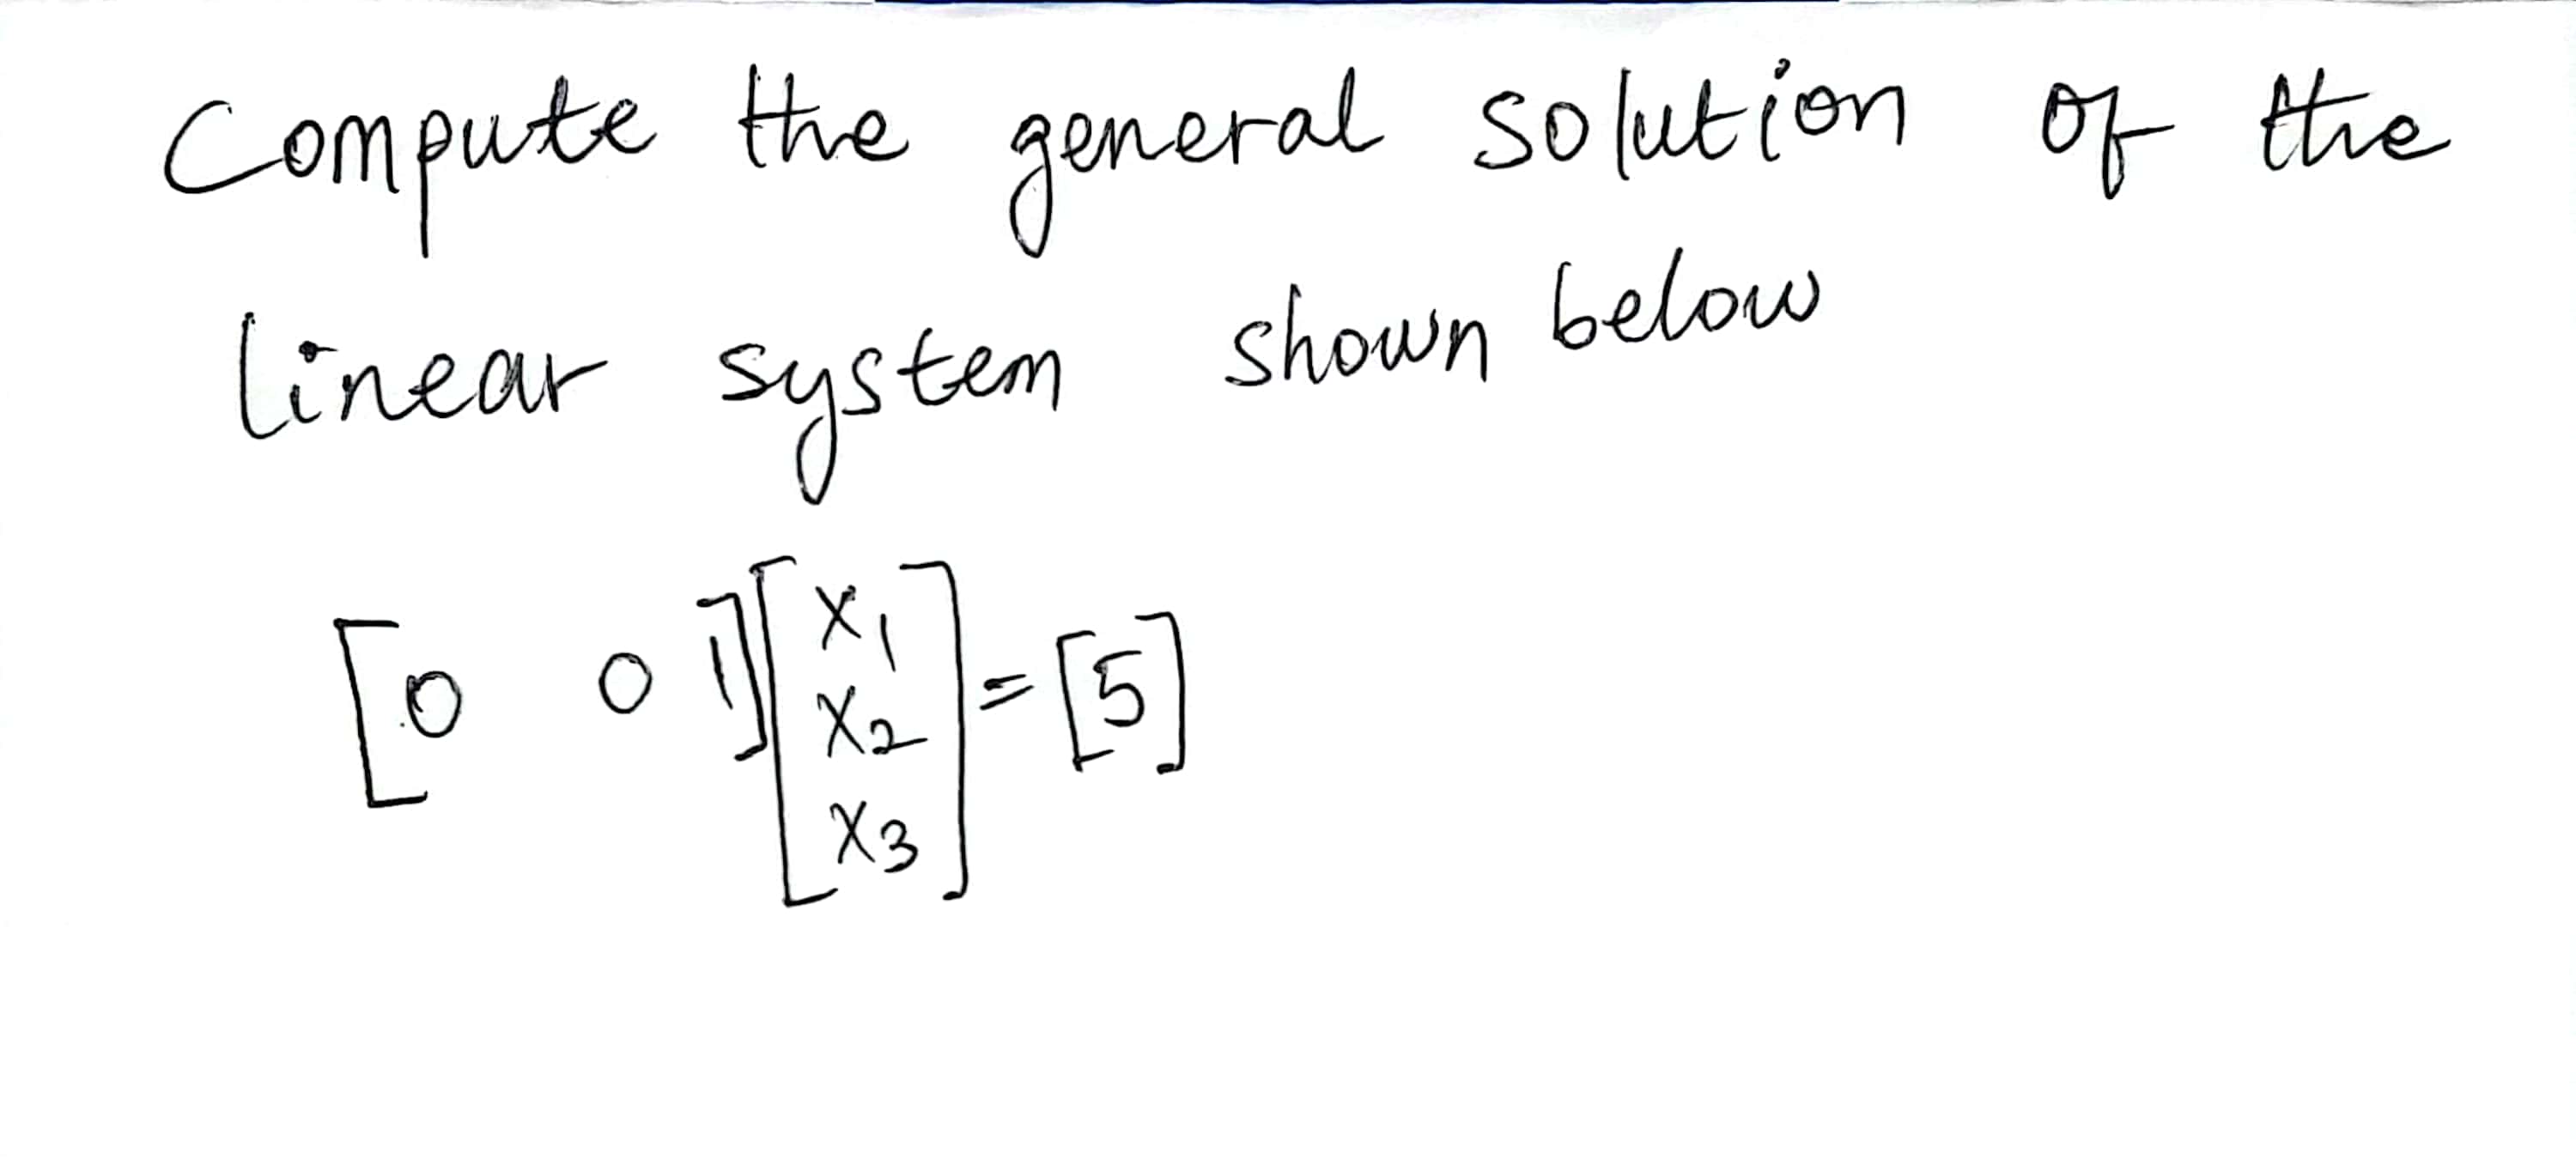 Compute the general solution of the
linear system shown below
[0 0 1] [x1 x2 x3] = [5]